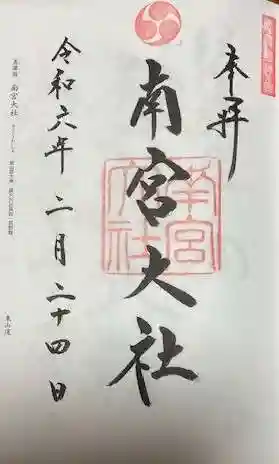 奉拝
南宮大社
南宮
大社
令和六年二月二十四日
美濃國 南宮大社
東山道